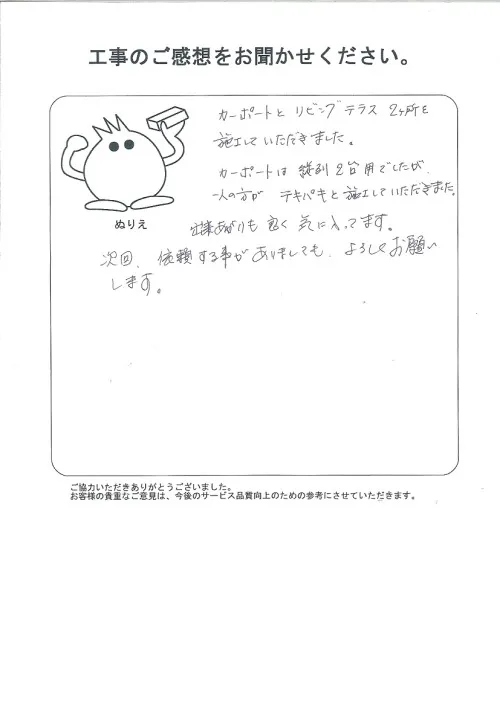 工事のご感想をお聞かせください。
カーポートと リビングテラス 2ヶ所を
施工していただきました。
カーポートは 縦列2台用でしたが、
一人の方が テキパキと施工していただきました。
出来あがりも良く 気に入ってます。
ぬりえ
次回、依頼する事がありましても、よろしくお願い
します。
ご協力いただきありがとうございました。
お客様の貴重なご意見は、今後のサービス品質向上のための参考にさせていただきます。